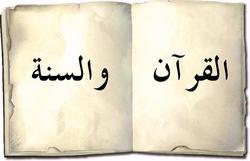 القرآن والسنة